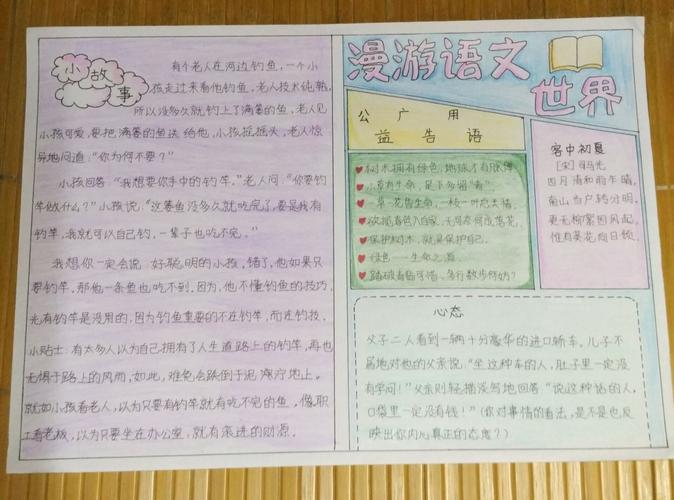 小故事
有个老人在河边钓鱼，一个小
孩走过来看他钓鱼，老人技术纯熟，
所以没多久就钓上了满篓的鱼，老人见
小孩可爱，要把满篓的鱼送给他，小孩摇摇头，老人惊
异地问道："你为何不要？"
小孩回答："我想要你手中的钓竿。"老人问："你要钓
竿做什么？"小孩说："这篓鱼没多久就吃完了，要是我有
钓竿，我就可以自己钓，一辈子也吃不完。"
我想你一定会说：好聪明的小孩，错了，他如果只
要钓竿，那他一条鱼也吃不到。因为，他不懂钓鱼的技巧，
光有钓竿是没用的，因为钓鱼重要的不在钓竿，而在钓技。
小贴士：有太多人以为自己拥有了人生道路上的钓竿，再也
无惧于路上的风雨，如此，难免会跌倒于泥泞地上。
就如小孩看老人，以为只要有钓竿就有吃不完的鱼，像职
工看老板，以为只要坐在办公室，就有滚进的财源。
漫游语文
世界
公广用
益告语
树木拥有绿色，地球才有脉搏
小草有生命，足下多留"青"
一草一花皆生命，一枝一叶总关情
欲揽春色入自家，无可奈何成落花
保护树木，就是保护自己
绿色——生命之源
踏破青毯可惜，多行数步何妨？
客中初夏
[宋]司马光
四月清和雨乍晴，
南山当户转分明。
更无柳絮因风起，
惟有葵花向日倾。
心态
父子二人看到一辆十分豪华的进口轿车。儿子不
屑地对他的父亲说："坐这种车的人，肚子里一定没
有学问！"父亲则轻描淡写地回答："说这种话的人，
口袋里一定没有钱！"（你对事情的看法，是不是也反
映出你内心真正的态度？）